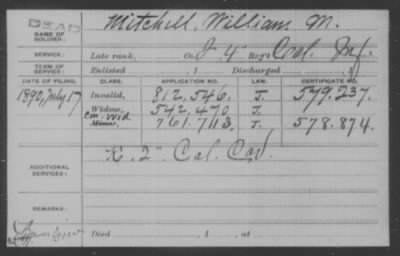 DEAD
NAME OF SOLDIER: Mitchell, William M.
SERVICE: Late rank, Co. J, 4" Reg't Cal. Inf.
TERM OF SERVICE: Enlisted , 1 Discharged , 1
DATE OF FILING. CLASS. APPLICATION NO. LAW. CERTIFICATE NO.
1890, July 17 Invalid, 812,546. J. 579.237.
Widow, 542.470 J.
Con. Wid Minor, 761.713. J. 578.874.
ADDITIONAL SERVICES: K. 2" Cal. Cav.
REMARKS:
Died , 1 , at